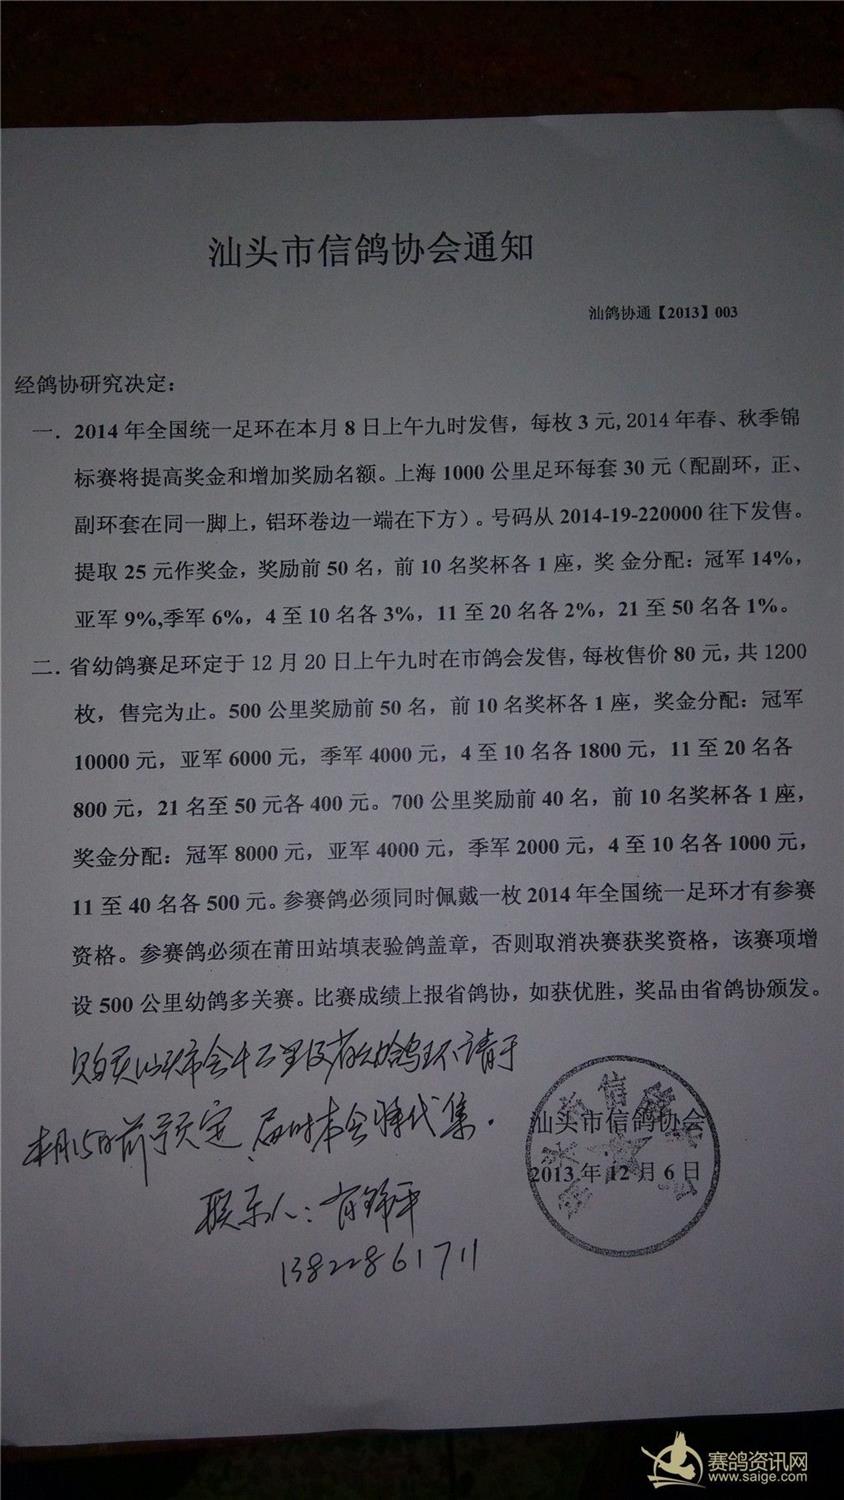 汕头市信鸽协会通知
汕鸽协通【2013】003
经鸽协研究决定：
一．2014年全国统一足环在本月8日上午九时发售，每枚3元,2014年春、秋季锦
标赛将提高奖金和增加奖励名额。上海1000公里足环每套30元（配副环，正、
副环套在同一脚上，铝环卷边一端在下方）。号码从2014-19-220000往下发售。
提取25元作奖金，奖励前50名，前10名奖杯各1座，奖 金分配：冠军14%，
亚军9%,季军6%，4至10名各3%，11至20名各2%，21至50名各1%。
二．省幼鸽赛足环定于12月20日上午九时在市鸽会发售，每枚售价80元，共1200
枚，售完为止。500公里奖励前50名，前10名奖杯各1座，奖金分配：冠军
10000元，亚军6000元，季军4000元，4至10名各1800元，11至20名各
800元，21名至50元各400元。700公里奖励前40名，前10名奖杯各1座，
奖金分配：冠军8000元，亚军4000元，季军2000元，4至10名各1000元，
11至40名各500元。参赛鸽必须同时佩戴一枚2014年全国统一足环才有参赛
资格。参赛鸽必须在莆田站填表验鸽盖章，否则取消决赛获奖资格，该赛项增
设500公里幼鸽多关赛。比赛成绩上报省鸽协，如获优胜，奖品由省鸽协颁发。
购买汕头市会千公里及省幼鸽环请于
本月15日前预定，届时本会将代集．
汕头市信鸽协会
2013年12月6日
联系人：
13822861711
赛鸽资讯网
www.saige.com